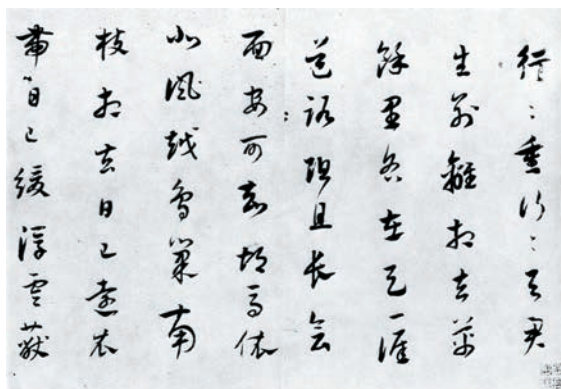 行〻重行〻与君
生别離相去萬
餘里各在天一涯
道路阻且長会
面安可知胡馬依
北風越鳥巢南
枝相去日已遠衣
帶日已緩浮雲蔽